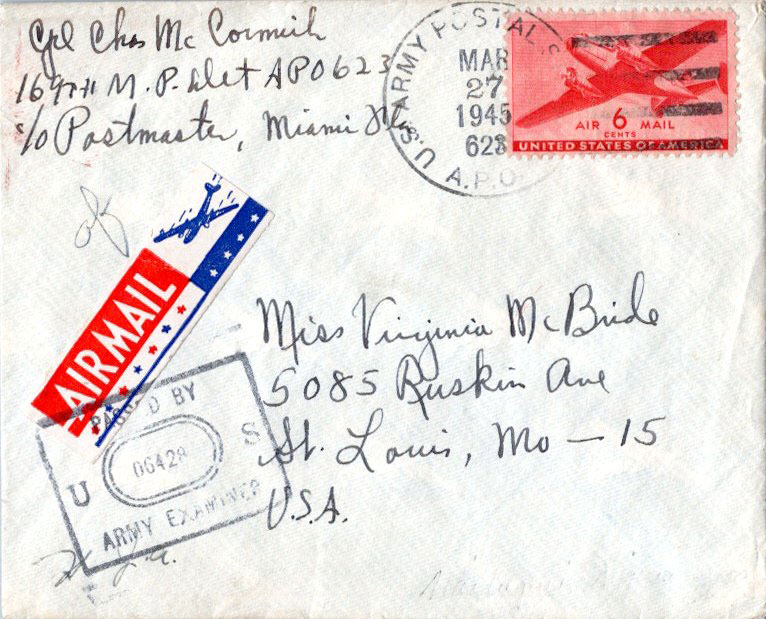 Cpl Chas McCormick
169TH M.P. Det APO 623
c/o Postmaster, Miami Fla
U.S. ARMY POSTAL S
MAR
27
1945
623
A.P.O.
AIR 6 MAIL
CENTS
UNITED STATES OF AMERICA
AIRMAIL
Miss Virginia McBride
5085 Ruskin Ave
St. Louis, Mo — 15
U.S.A.
PASSED BY
U 06428 S
ARMY EXAMINER